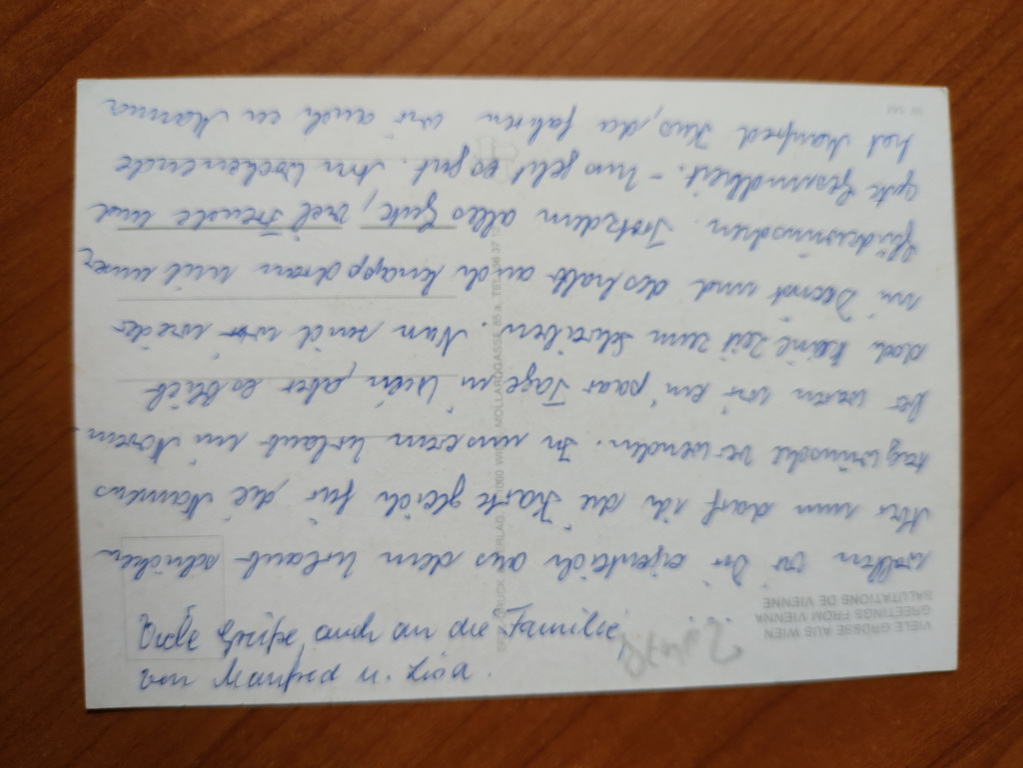 VIELE GRÜSSE AUS WIEN
GREETINGS FROM VIENNA
SALUTATIONS DE VIENNE
wollten wir Dir eigentlich aus dem Urlaub schicken
Aber nun darf ich die Karte gleich für die Namens
tagwünsche verwenden. In unserem Urlaub im Novem-
ber waren wir ein paar Tage in Wien, aber es blieb
doch keine Zeit zum Schreiben. Nun sind wir wieder
im Dienst und deshalb auch knapp dran mit unser
Glückwünschen. Trotzdem alles Gute, viel Freude und
gute Gesundheit. - Uns geht es gut. Am Wochenende
hat Manfred Kurs, da fahren wir auch
Grüße auch an die Familie
von Manfred u.